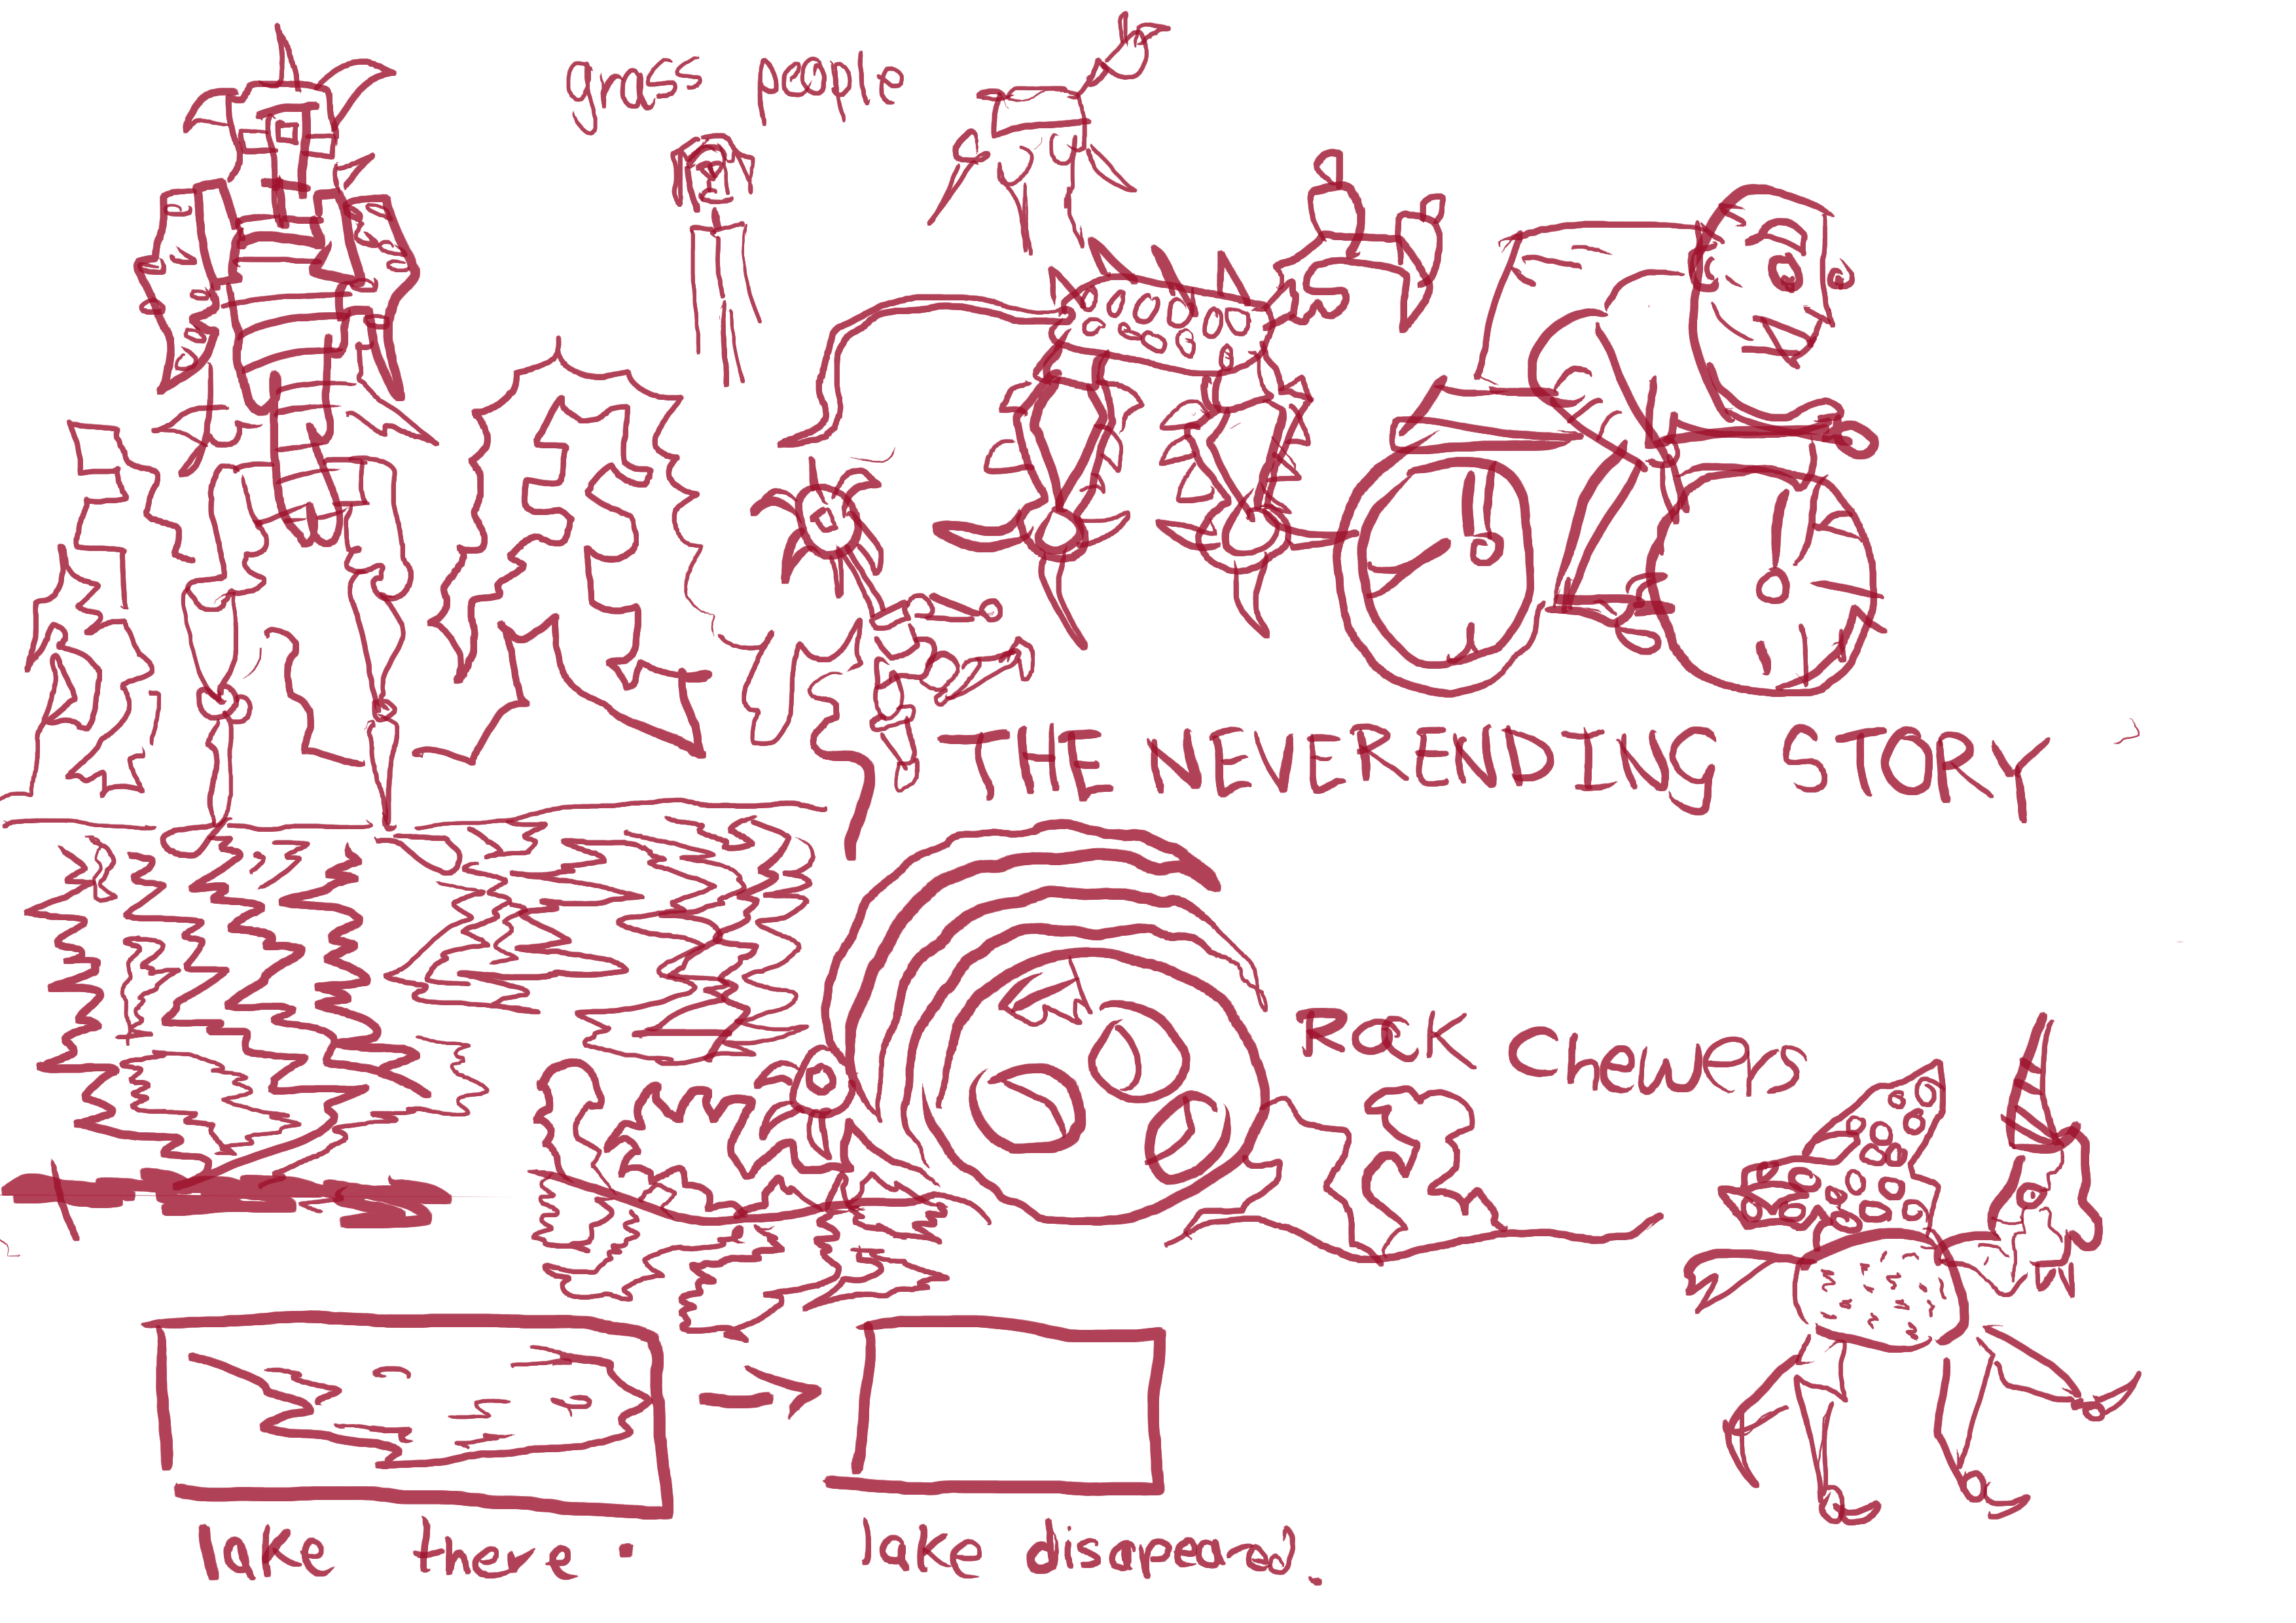 grass people
THE NEVERENDING STORY
ROCK Chewers
lake there .
lake disapeared.